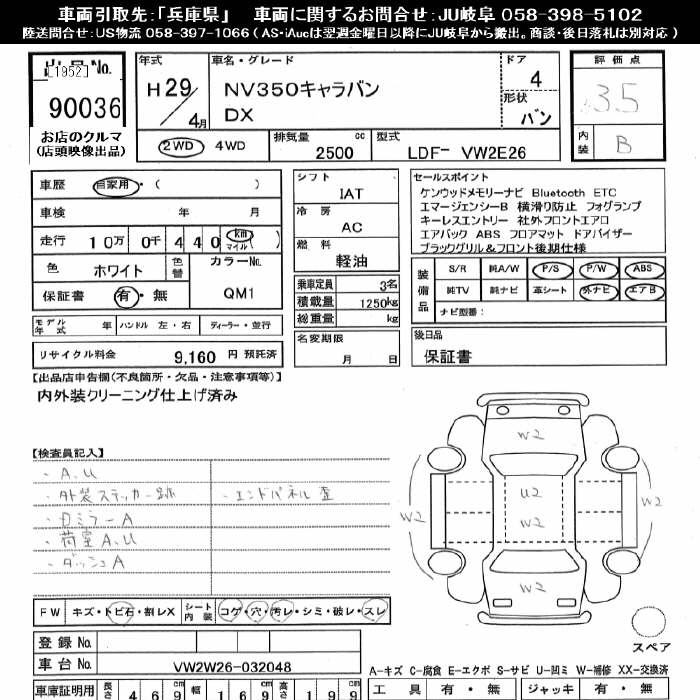 車両引取先:「兵庫県」 車両に関するお問合せ:JU岐阜 058-398-5102
陸送問合せ:US物流 058-397-1066 ( AS・iAucは翌週金曜日以降にJU岐阜から搬出。商談・後日落札は別対応 )
出品No.
[1952]
90036
お店のクルマ
(店頭映像出品)
年式
H29/4月
車名・グレード
NV350キャラバン
DX
ドア
4
形状
バン
評価点
3.5
内装
B
2WD 4WD
排気量 cc
2500
型式
LDF- VW2E26
車歴 自家用・( )
車検 年 月
走行 10万 0千 440 km マイル ( )
色 ホワイト 色替
カラーNo.
QM1
保証書 有・無
モデル年式 年 ハンドル 左・右 ディーラー・並行
リサイクル料金 9,160 円 預託済
シフト
IAT
冷房
AC
燃料
軽油
乗車定員 3名
積載量 1250kg
総重量 kg
名変期限
月 日
セールスポイント
ケンウッドメモリーナビ Bluetooth ETC
エマージェンシーB 横滑り防止 フォグランプ
キーレスエントリー 社外フロントエアロ
エアバック ABS フロアマット ドアバイザー
ブラックグリル&フロント後期仕様
装備品
S/R 純A/W P/S P/W ABS
純TV 純ナビ 革シート 外ナビ エアB
ナビ型番:
後日品
保証書
【出品店申告欄(不良箇所・欠品・注意事項等)】
内外装クリーニング仕上げ済み
【検査員記入】
・A,U
・外装ステッカー跡
・エンドパネル歪
・ミラーA
・荷室A,U
・ダッシュA
W2
U2
W2
W2
W2
W2
スペア
FW キズ・トビ石・割レX シート内装 コゲ・穴・汚レ・シミ・破レ・スレ
登録No.
車台No. VW2W26-032048
A-キズ C-腐食 E-エクボ S-サビ U-凹ミ W-補修 XX-交換済
車庫証明用 長さ 469cm 幅 169cm 高さ 199cm
工具 有・無 ジャッキ 有・無